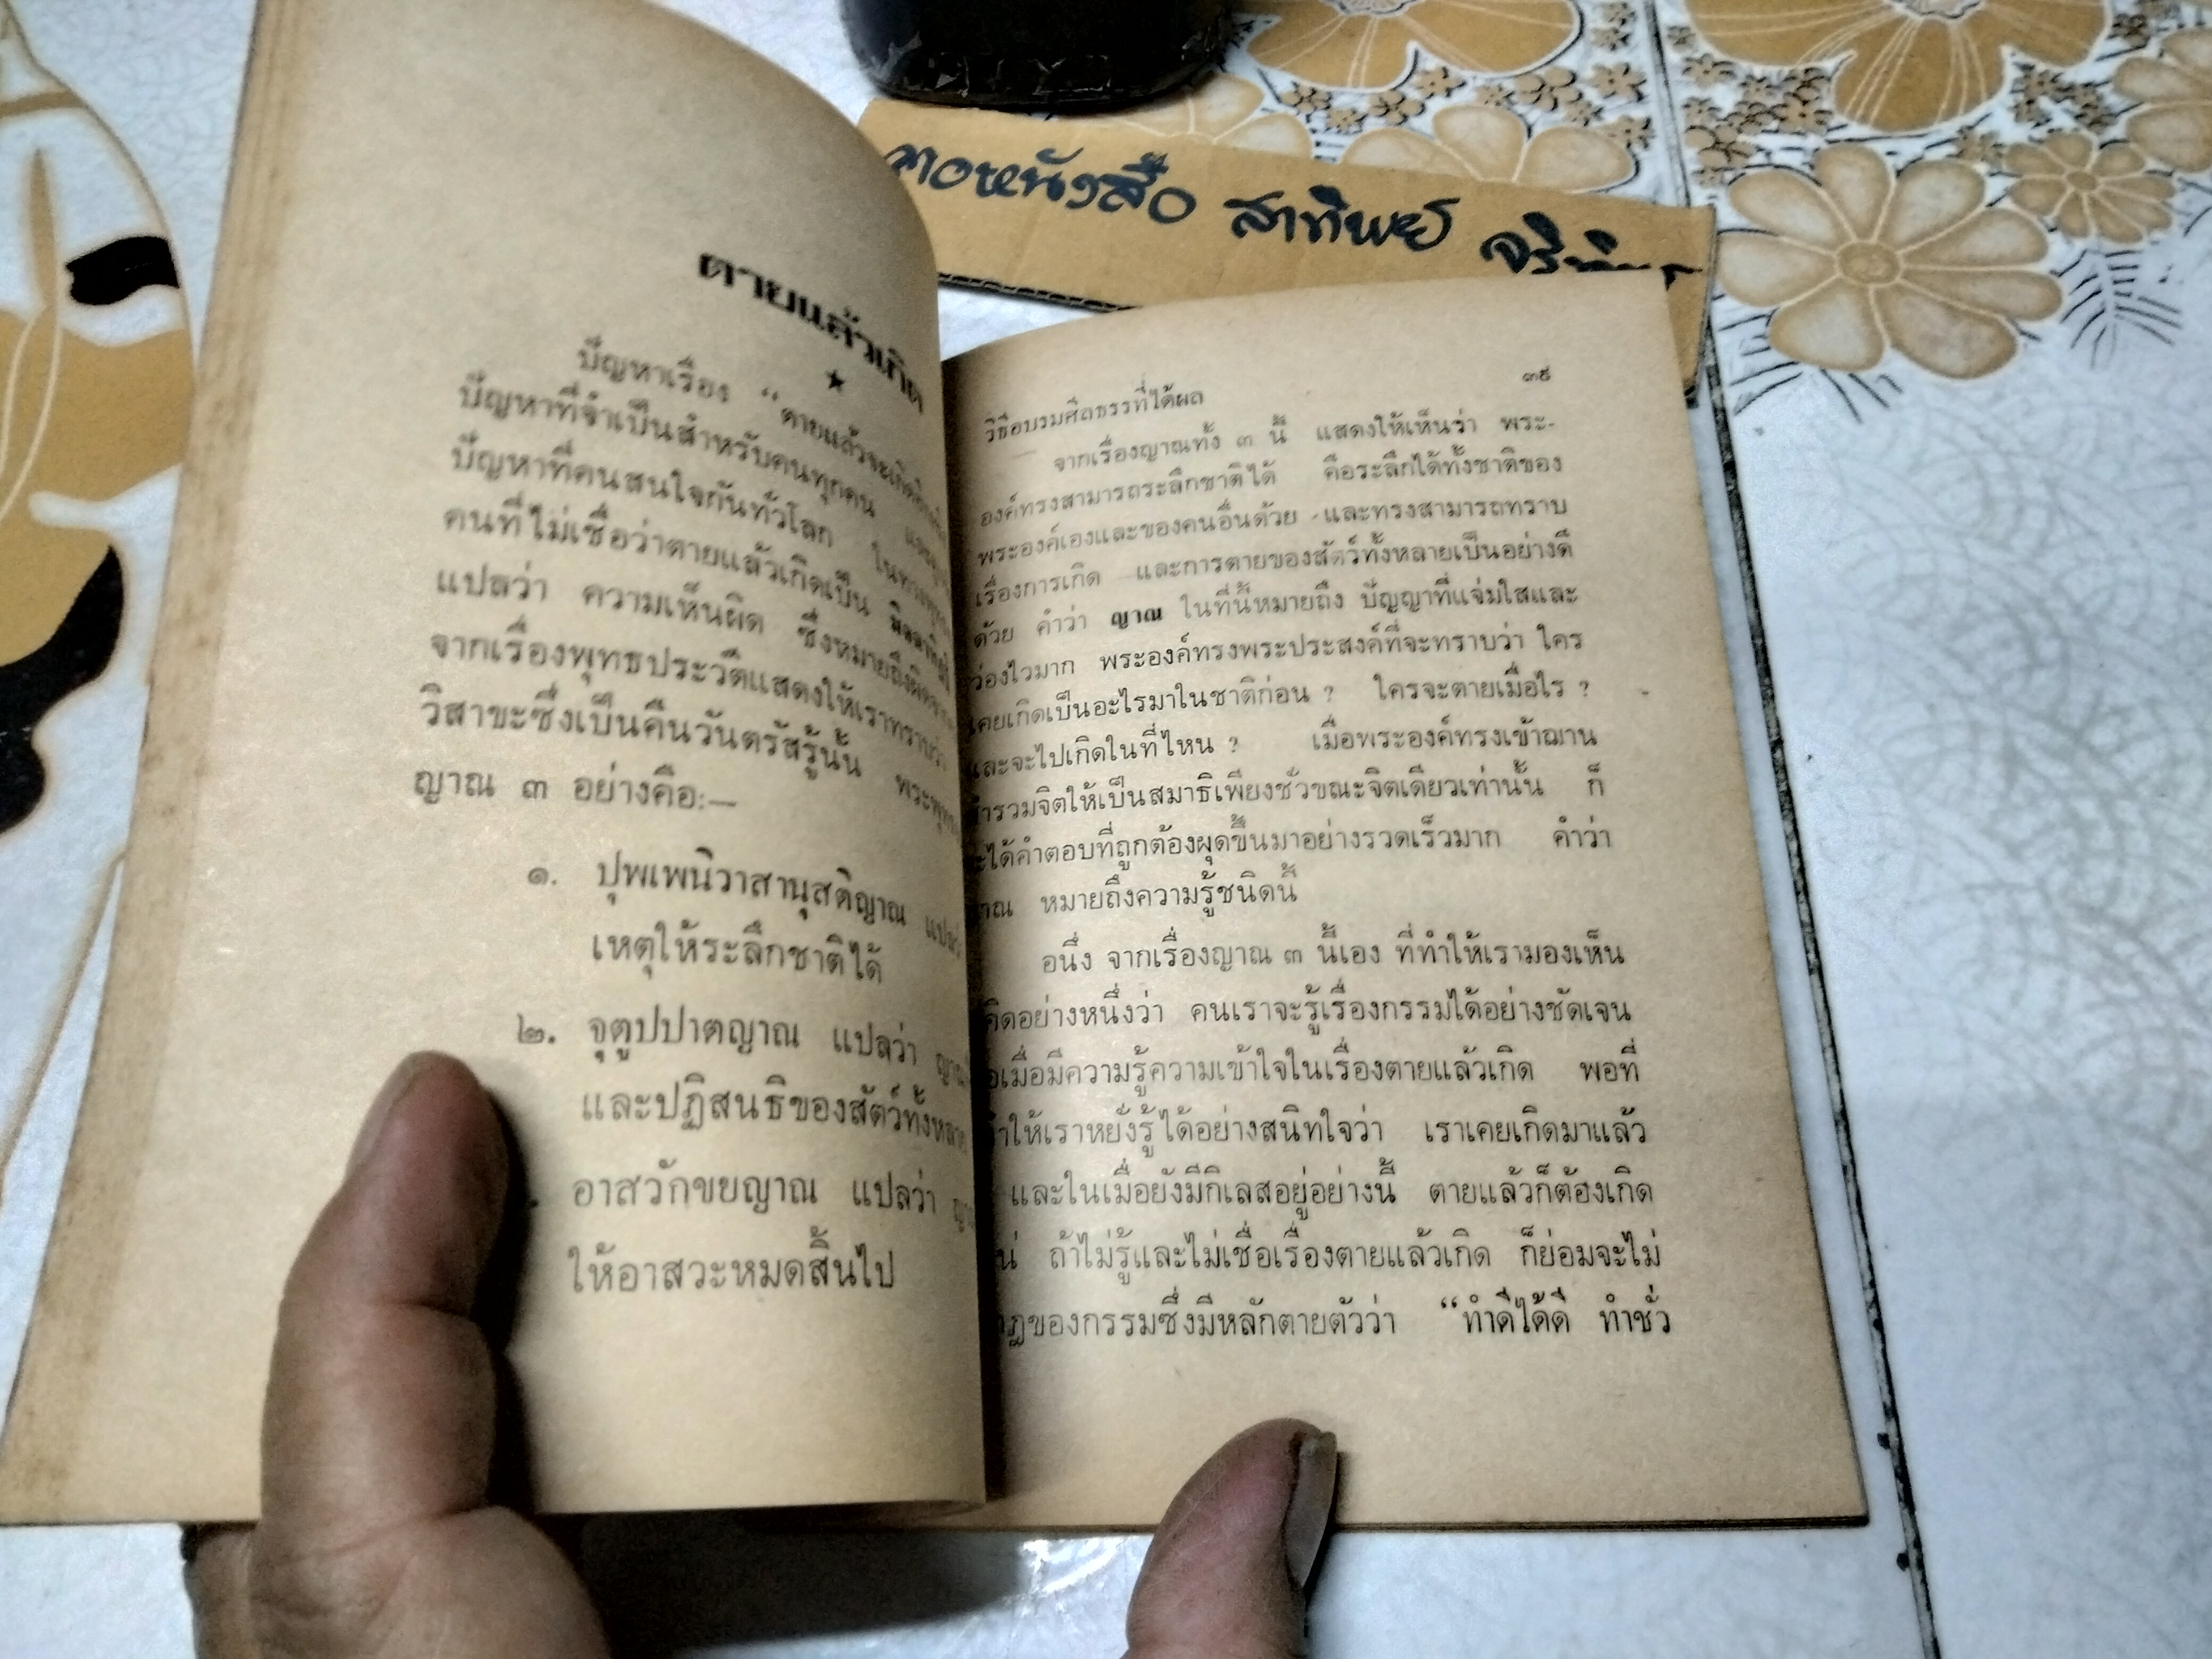 หอหนังสือ สาทิพย์
ตายแล้วเกิด
ปัญหาเรื่อง “ตายแล้วจะเกิด
ปัญหาที่จำเป็นสำหรับคนทุกคน และ
ปัญหาที่คนสนใจกันทั่วโลก ในทาง
คนที่ไม่เชื่อว่าตายแล้วเกิดเป็น
แปลว่า ความเห็นผิด ซึ่งหมายถึง
จากเรื่องพุทธประวัติแสดงให้เราทราบว่า
วิสาขะซึ่งเป็นคืนวันตรัสรู้นั้น
ญาณ ๓ อย่างคือ:—
๑. ปุพเพนิวาสานุสติญาณ แปลว่า
เหตุให้ระลึกชาติได้
๒. จุตูปปาตญาณ แปลว่า
และปฏิสนธิของสัตว์ทั้งหลาย
อาสวักขยญาณ แปลว่า
ให้อาสวะหมดสิ้นไป
วิธีอบรมศีลธรรมที่ได้ผล ๓๕
จากเรื่องญาณทั้ง ๓ นี้ แสดงให้เห็นว่า พระ-
องค์ทรงสามารถระลึกชาติได้ คือระลึกได้ทั้งชาติของ
พระองค์เองและของคนอื่นด้วย และทรงสามารถทราบ
เรื่องการเกิด และการตายของสัตว์ทั้งหลายเป็นอย่างดี
ด้วย คำว่า ญาณ ในที่นี้หมายถึง ปัญญาที่แจ่มใสและ
ว่องไวมาก พระองค์ทรงพระประสงค์ที่จะทราบว่า ใคร
เคยเกิดเป็นอะไรมาในชาติก่อน ? ใครจะตายเมื่อไร ?
และจะไปเกิดในที่ไหน ? เมื่อพระองค์ทรงเข้าฌาน
สำรวมจิตให้เป็นสมาธิเพียงชั่วขณะจิตเดียวเท่านั้น ก็
จะได้คำตอบที่ถูกต้องผุดขึ้นมาอย่างรวดเร็วมาก คำว่า
ญาณ หมายถึงความรู้ชนิดนี้
อนึ่ง จากเรื่องญาณ ๓ นี้เอง ที่ทำให้เรามองเห็น
คิดอย่างหนึ่งว่า คนเราจะรู้เรื่องกรรมได้อย่างชัดเจน
เมื่อมีความรู้ความเข้าใจในเรื่องตายแล้วเกิด พอที่
ทำให้เราหยั่งรู้ได้อย่างสนิทใจว่า เราเคยเกิดมาแล้ว
และในเมื่อยังมีกิเลสอยู่อย่างนี้ ตายแล้วก็ต้องเกิด
ถ้าไม่รู้และไม่เชื่อเรื่องตายแล้วเกิด ก็ย่อมจะไม่
กฎของกรรมซึ่งมีหลักตายตัวว่า “ทำดีได้ดี ทำชั่ว